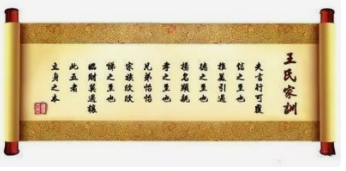 王氏家訓
夫言行可覆
信之至也
推美引過
德之至也
揚名顯親
孝之至也
兄弟怡怡
族欣欣
悌之至也
臨財莫過讓
此五者
立身之本